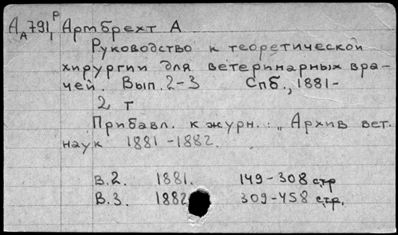 АА791,Р Артбрехт А
Руководство к теоретической
хирургии для ветеринарных вра-
чей. Вып. 2-3 Спб., 1881-
2 т
Прибавл. к журн.: „Архив вет.
наук 1881-1882.
в.2. 1881. 149-308 стр
В.3. 1882 309-458 стр.